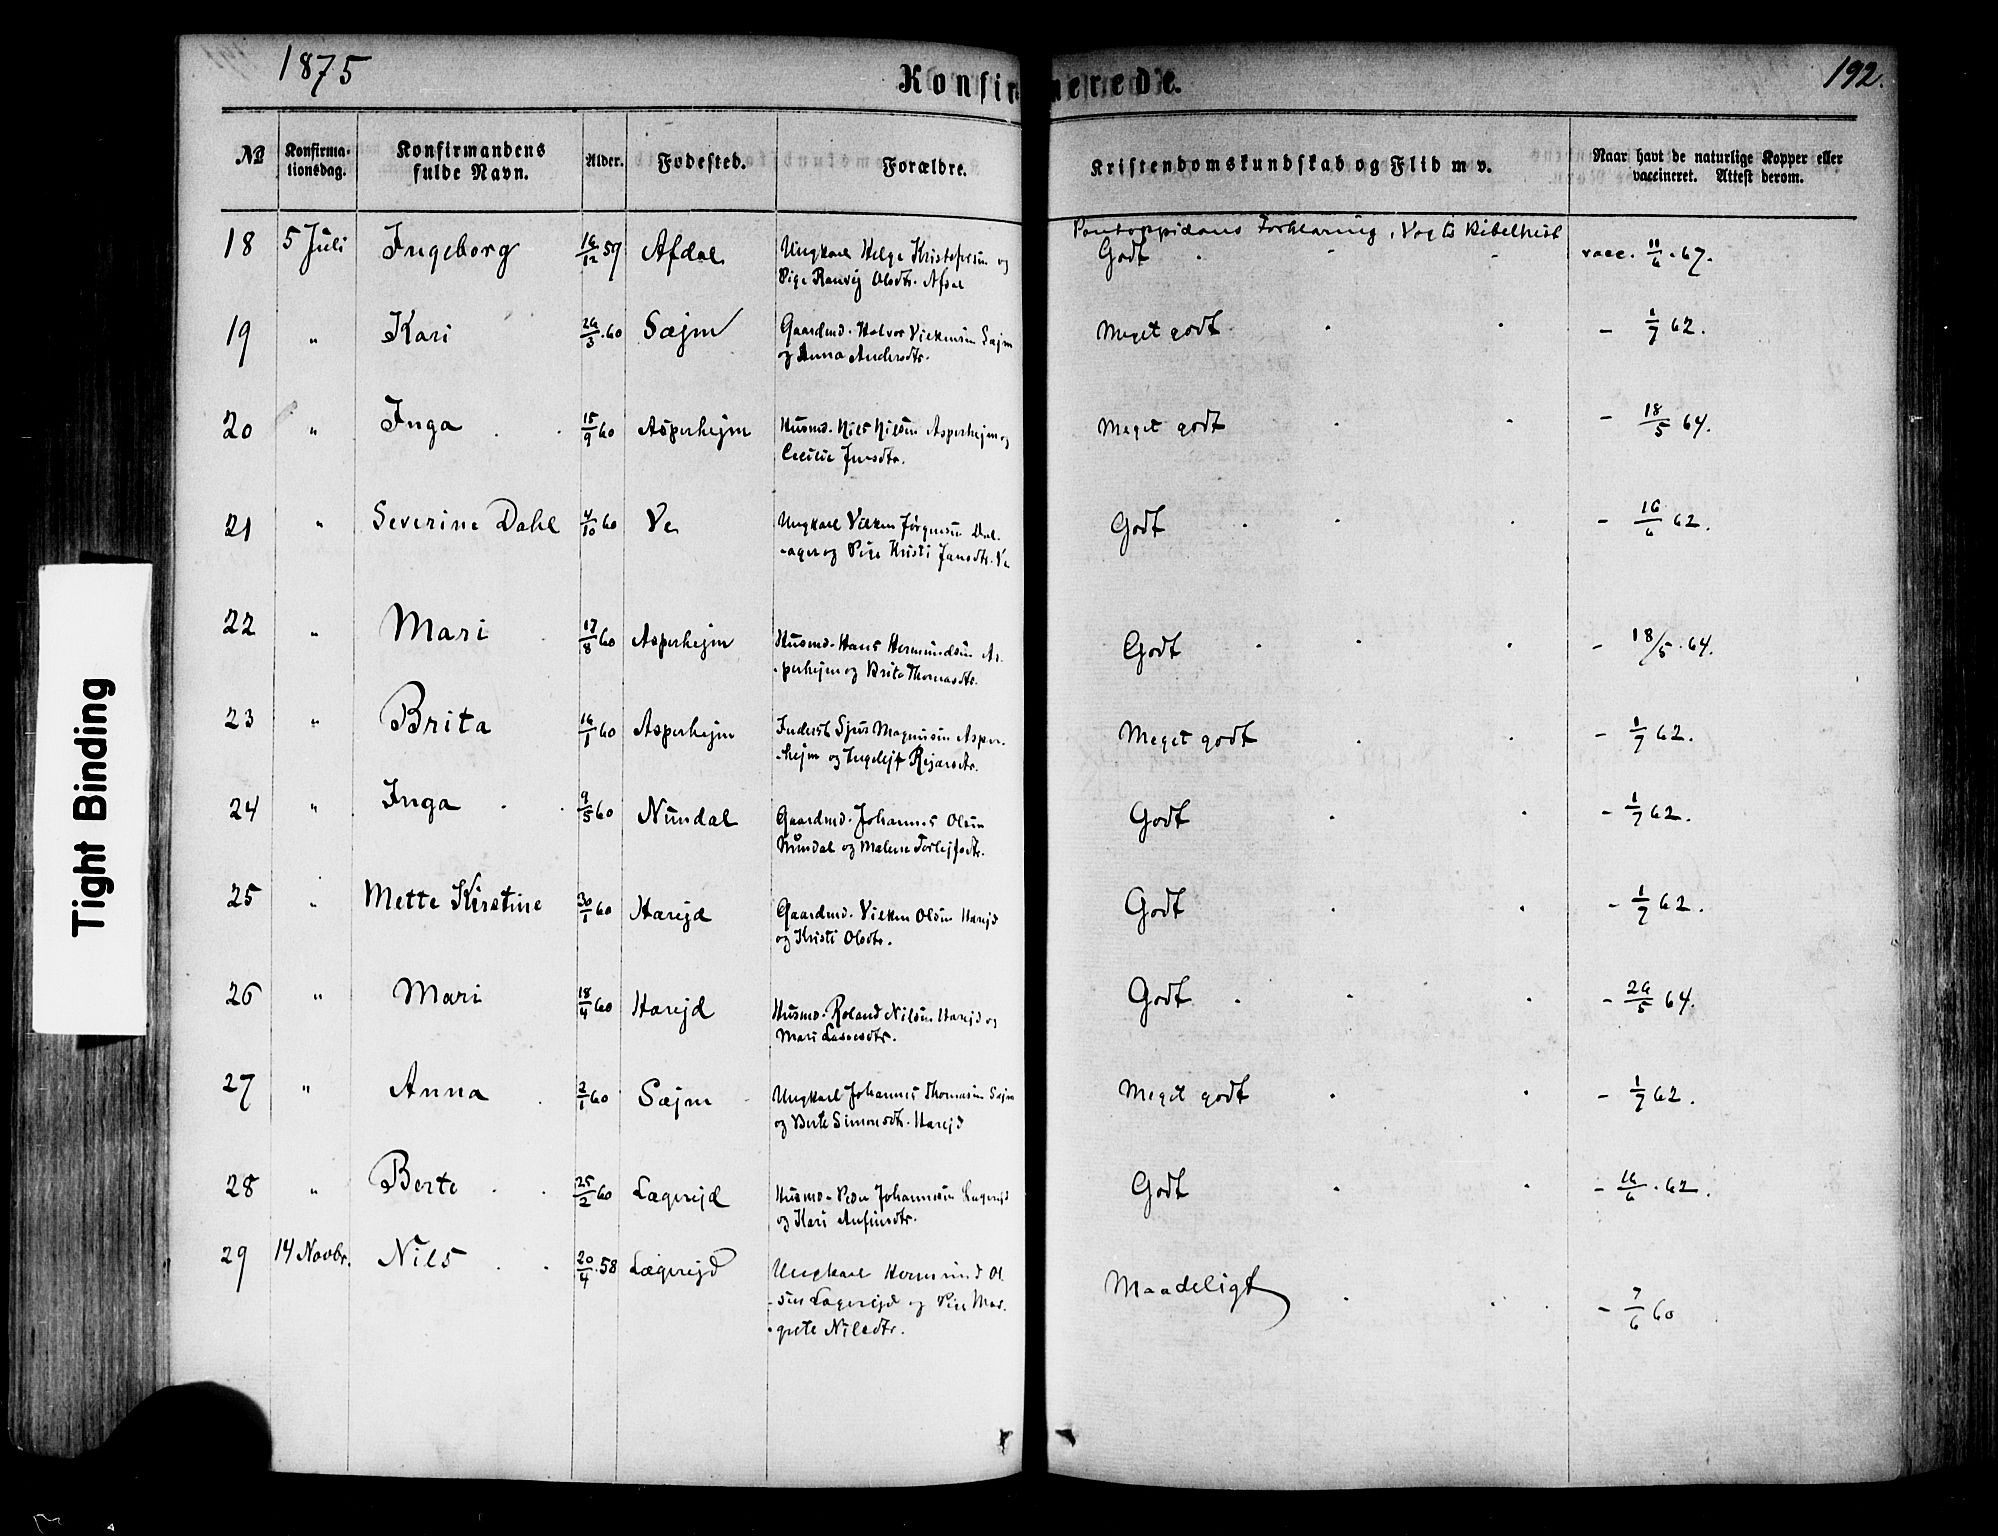 1875
Konfirmerede.
192.
No Konfirma-tionsdag. Konfirmandens fulde Navn. Alder. Fodested. Forældre. Kristendomskundskab og Flid m v. Naar havt de naturlige Kopper eller vaccineret. Attest derom.
Pontoppidans Forklaring, Vogts Bibelhist
18 5 Juli Ingeborg 16/12 59 Afdal Ungkarl Helge Kristofersen og Godt vacc. 11/6 . 67.
Pige Ranvig Olsdtr. Afdal
19 " Kari 26/3 . 60 Sæjm Gaardmd. Halvor Vilkensen Sæjm Meget godt - 1/7 62.
og Anna Andersdtr.
20 " Inga 15/9 60 Asperhejm Husmd. Nils Nilsen Asperhejm og Meget godt - 18/5 64.
Cecilie Jensdtr.
21 " Severine Dahl 4/10 60 Ve Ungkarl Vilken Jørgensen Dal- Godt - 16/6 62.
-ager og Pige Kristi Jansdtr. Ve
22 " Mari 17/8 60 Asperhejm Husmd. Hans Hermundsen As- Godt - 18/5 . 64.
-perhejm og Brita Thomasdtr.
23 " Brita 16/1 60 Asperhejm Inderst Sjur Magnusen Asper- Meget godt - 1/7 62.
-hejm og Ingelejf Rejarsdtr.
24 " Inga 9/5 60 Nundal Gaardmd. Johannes Olsen Godt - 1/7 62.
Nundal og Malene Torlejfsdtr.
25 " Mette Kirstine 30/1 60 Harejd Gaardmd. Vilken Olsen Harejd Godt - 1/7 62.
og Kristi Olsdtr.
26 " Mari 18/4 60 Harejd Husmd. Roland Nilsen Harejd og Godt - 26/5 64.
Mari Lassesdtr.
27 " Anna 2/1 60 Sæjm Ungkarl Johannes Thomasen Sæjm Meget godt - 1/7 62.
og Berte Simonsdtr. Harejd
28 " Berte 25/2 60 Lægrejd Husmd. Peder Johannesen Lægrejd Godt - 16/6 . 62.
og Kari Anfinsdtr.
29 14 Novbr. Nils 20/4 . 58 Lægrejd Ungkarl Hermund Ol- Maadeligt - 7/6 60
-sen Lægrejd og Pige Mar-
-grete Nilsdtr.
Tight Binding